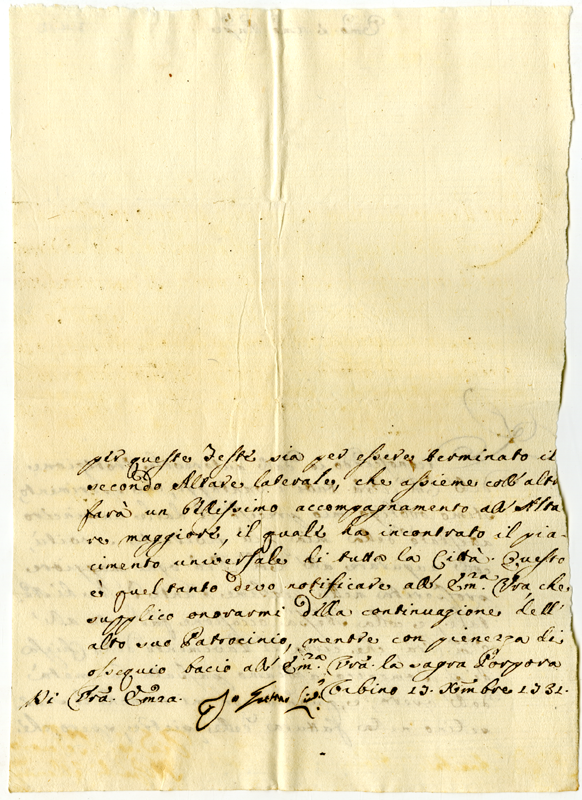 per queste Feste sia per essere terminato il
secondo Altare laterale, che assieme coll'altro
farà un bellissimo accompagnamento all'Alta
re maggiore, il quale ha incontrato il pia-
cimento universale di tutta la Città. Questo
è quel tanto devo notificare all'Em.ª Vra, che
supplico onorarmi della continuazione dell'
alto suo Patrocinio, mentre con pienezza di
ossequio bacio all'Em.ª Vra. la sagra Porpora
Di Vra. Emza. Urbino 13. Xmbre 1731.